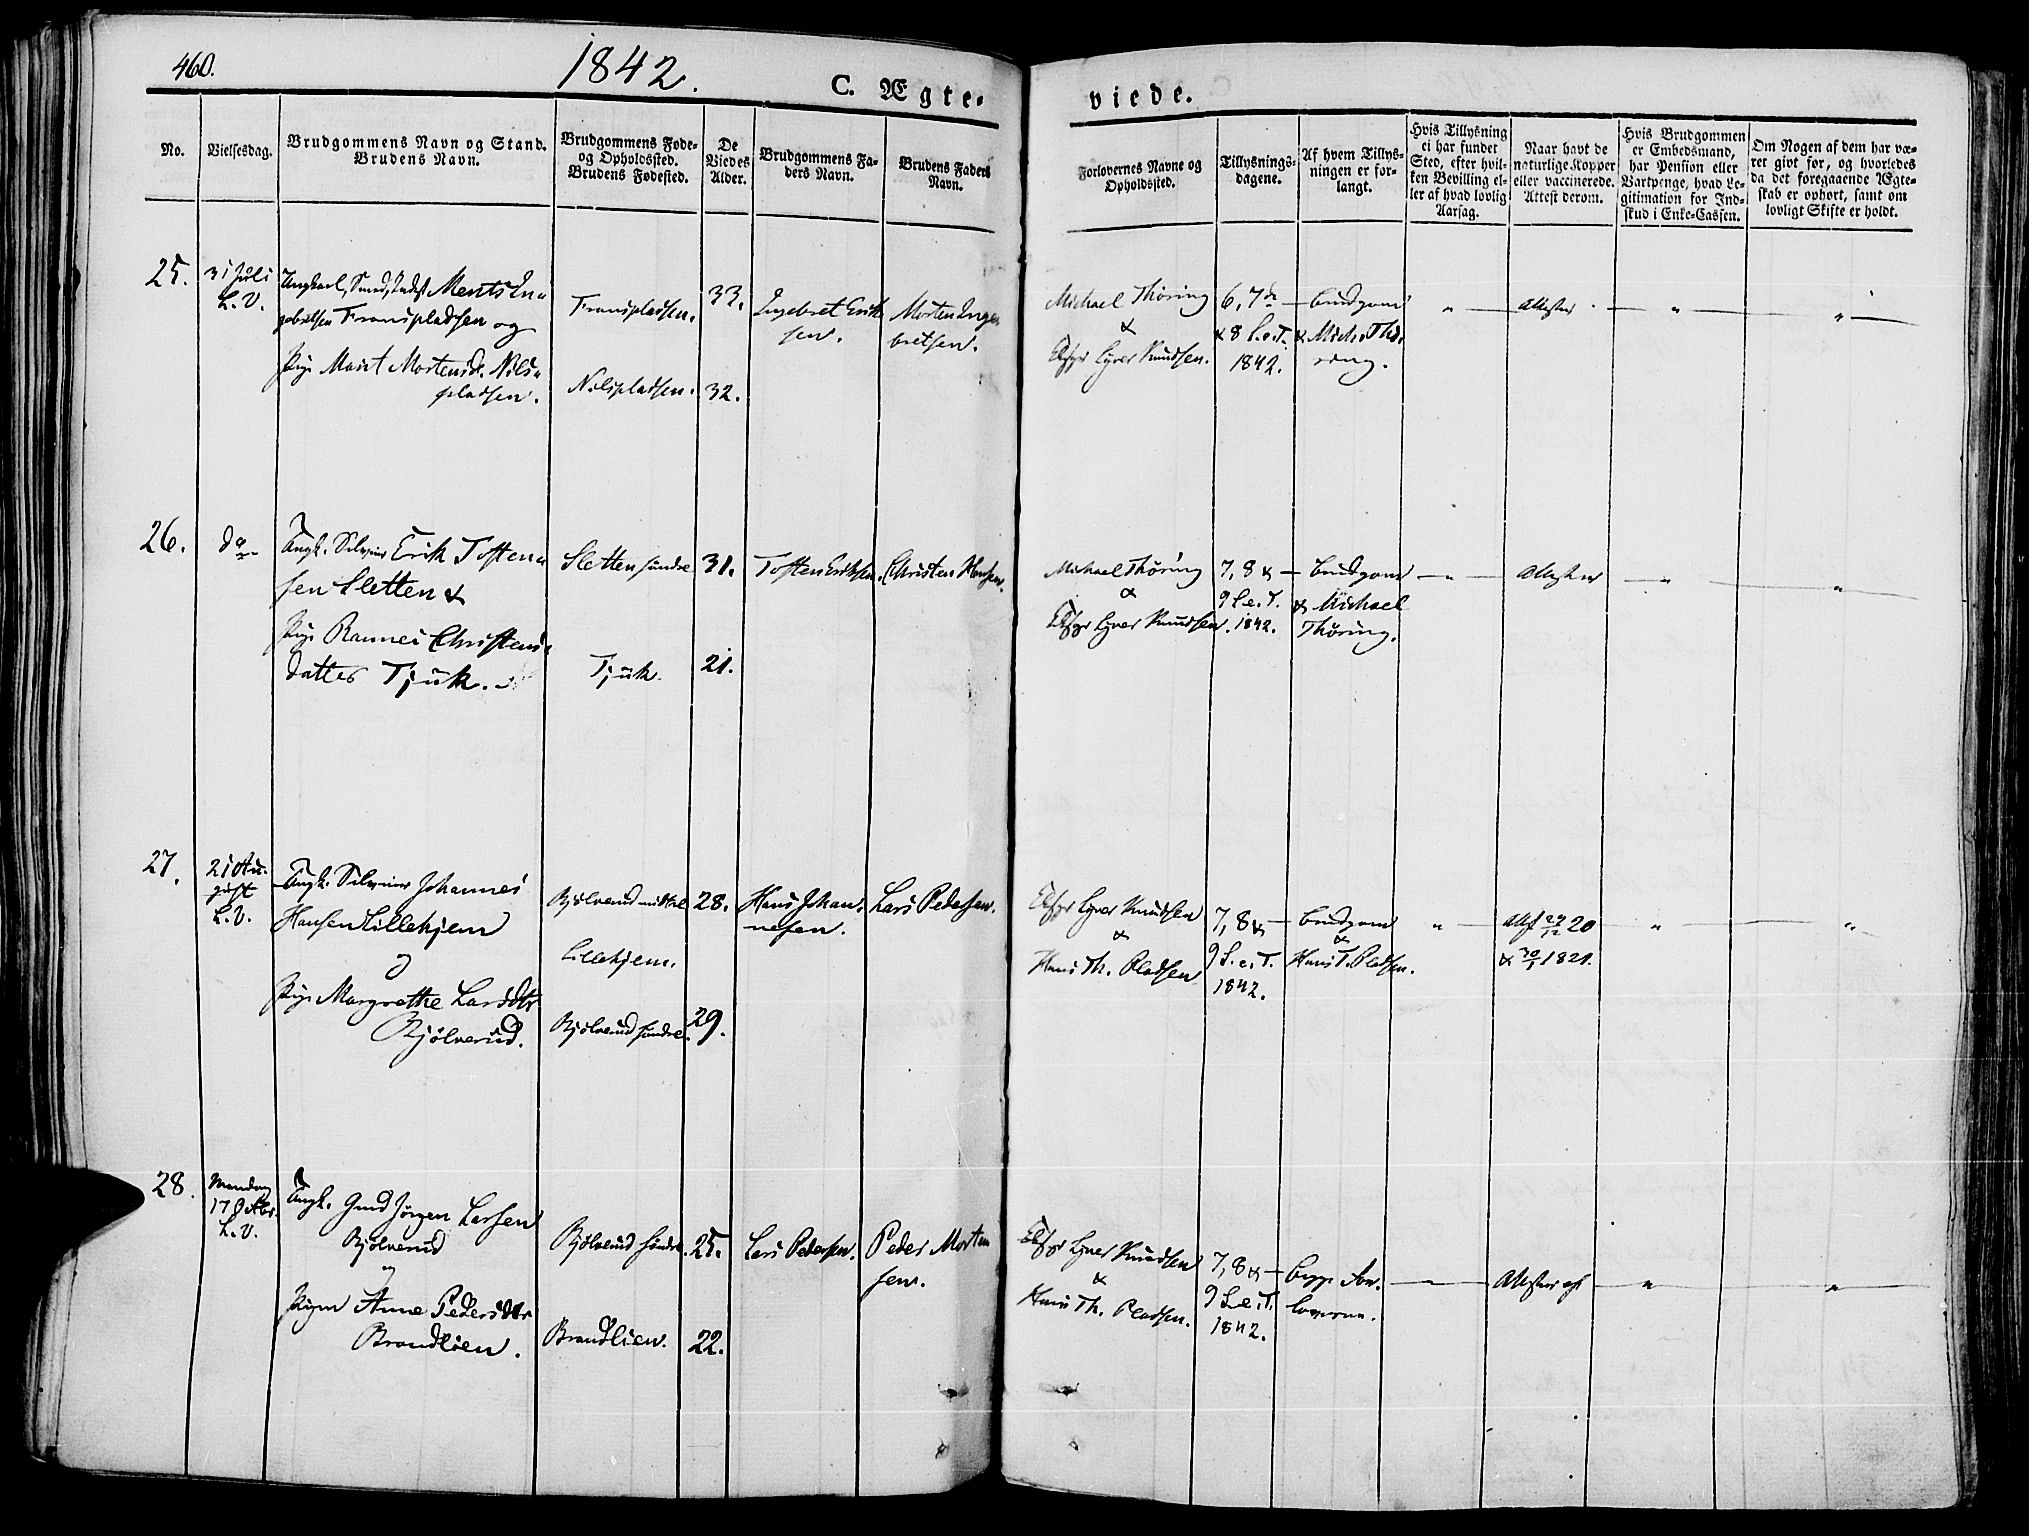 460.
1842.
C. Ægte-
viede.
No.
Vielsesdag.
Brudgommens Navn og Stand.
Brudens Navn.
Brudgommens Føde-
og Opholdssted.
Brudens Fødested.
De
Viedes
Alder.
Brudgommens Fa-
ders Navn.
Brudens Faders
Navn.
Forlovernes Navne og
Opholdssted.
Tillysnings-
dagene.
Af hvem Tillys-
ningen er for-
langt.
Hvis Tillysning
ei har fundet
Sted, efter hvil-
ken Bevilling el-
ler af hvad lovlig
Aarsag.
Naar havt de
naturlige Kopper
eller vaccinerede.
Attest derom.
Hvis Brudgommen
er Embedsmand,
har Pension eller
Vartpenge, hvad Le-
gitimation for Ind-
skud i Enke-Cassen.
Om Nogen af dem har væ-
ret givt før, og hvorledes
da det foregaaende Ægte-
skab er ophørt, samt om
lovligt Skifte er holdt.
25.
31 Juli
L. V.
Ungkarl, Ments In-
gebretsen Franspladsen og
Pige Marit Mortensd. Nils-
pladsen.
Franspladsen.
Nilspladsen.
33.
32.
Ingebret Erik
sen.
Morten Inge
bretsen.
Michael Thøring
&
Lyver Knudsen.
6, 7de
& 8 S. e. T.
1842.
Brudgom
& Mich. Thø-
ring.
"
Attester
"
"
26.
do
Ungk. Selveier Erik Tosten-
sen Sletten &
Pige Rannei Christens-
datter Tjuk.
Sletten søndre
Tjuk.
31.
21.
Tosten Eriksen.
Christen Hansen.
Michael Thøring
&
Lyver Knudsen.
7, 8 &
9 S. e. T.
1842.
Brudgom
& Michael
Thøring.
"
Attester
"
"
27.
21 Au-
gust
L. V.
Ungk. Selveier Johannes
Hansen Lillehjem
og
Pige Margrethe Larsdtr
Bjölverud.
Bjölverud mittel
Lillehjem.
Bjölverud søndre.
28.
29.
Hans Johan-
nesen.
Lars Pedersen.
Lyver Knudsen
&
Hans Th. Pladsen
7, 8 &
9 S. e. T.
1842.
Brudgom
&
Hans T. Pladsen.
"
Att 29/12 20
& 30/1 1821.
"
"
28.
Mandag
17 Octbr.
L. V.
Ungk. Gud Jörgen Larsen
Bjölverud
og
Pigen Anne Pedersdtr
Brandlien.
Bjölverud søndre.
Brandlien.
25.
22.
Lars Pedersen.
Peder Morten
sen.
Lyver Knudsen
&
Hans Th. Pladsen.
7, 8 &
9 S. e. T.
1842.
Begge For-
loverne.
"
Attester
"
"